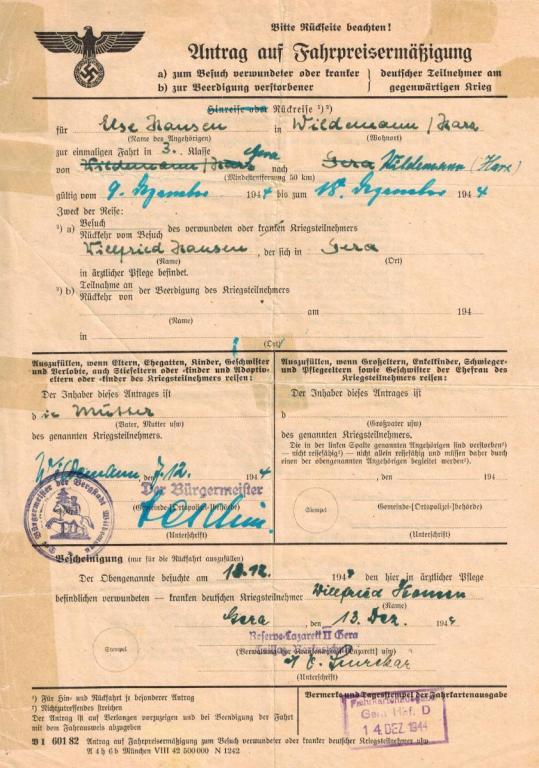 Bitte Rückseite beachten!
Antrag auf Fahrpreisermäßigung
a) zum Besuch verwundeter oder kranker
b) zur Beerdigung verstorbener
deutscher Teilnehmer am
gegenwärtigen Krieg
Hinreise oder Rückreise ¹) ²)
für Else Hansen in Wildemann/Harz
(Name des Angehörigen) (Wohnort)
zur einmaligen Fahrt in 3. Klasse Gera
von Wildemann/Harz nach Gera Wildemann (Harz)
(Mindestentfernung 50 km)
gültig vom 9. Dezember 1944 bis zum 18. Dezember 1944
Zweck der Reise:
²) a) Besuch
Rückkehr vom Besuch des verwundeten oder kranken Kriegsteilnehmers
Wilfried Hansen, der sich in Gera
(Name) (Ort)
in ärztlicher Pflege befindet.
²) b) Teilnahme an
Rückkehr von der Beerdigung des Kriegsteilnehmers
am 194
(Name)
in
(Ort)
Auszufüllen, wenn Eltern, Ehegatten, Kinder, Geschwister
und Verlobte, auch Stiefeltern oder -kinder und Adoptiv-
eltern oder -kinder des Kriegsteilnehmers reisen:
Der Inhaber dieses Antrages ist
die Mutter
(Vater, Mutter usw)
des genannten Kriegsteilnehmers.
Wildemann, 7.12. 1944
Der Bürgermeister
(Gemeinde-[Ortspolizei-]Behörde)
(Unterschrift)
Der Bürgermeister der Bergstadt Wildemann
Auszufüllen, wenn Großeltern, Enkelkinder, Schwieger-
und Pflegeeltern sowie Geschwister der Ehefrau des
Kriegsteilnehmers reisen:
Der Inhaber dieses Antrages ist
d
(Großvater usw)
des genannten Kriegsteilnehmers.
Die in der linken Spalte genannten Angehörigen sind verstorben²)
— nicht reisefähig²) — nicht allein reisefähig und müssen daher durch
einen der obengenannten Angehörigen begleitet werden²).
, den 194
Stempel
Gemeinde-[Ortspolizei-]Behörde)
(Unterschrift)
Bescheinigung (nur für die Rückfahrt auszufüllen)
Der Obengenannte besuchte am 10.12. 194 den hier in ärztlicher Pflege
befindlichen verwundeten — kranken deutschen Kriegsteilnehmer Wilfried Hansen
(Name)
Gera, den 13. Dez. 194
Stempel
Reserve-Lazarett II Gera
(Unterschrift)
¹) Für Hin- und Rückfahrt je besonderer Antrag
²) Nichtzutreffendes streichen
Der Antrag ist auf Verlangen vorzuzeigen und bei Beendigung der Fahrt
mit dem Fahrausweis abzugeben
Vermerke und Tagesstempel der Fahrkartenausgabe
Fahrkartenausgabe
Gera Hbf. D
14 DEZ. 1944
W I 601 82 Antrag auf Fahrpreisermäßigung zum Besuch verwundeter oder kranker deutscher Kriegsteilnehmer usw
A 4 h 6 b München VIII 42 500 000 N 1242